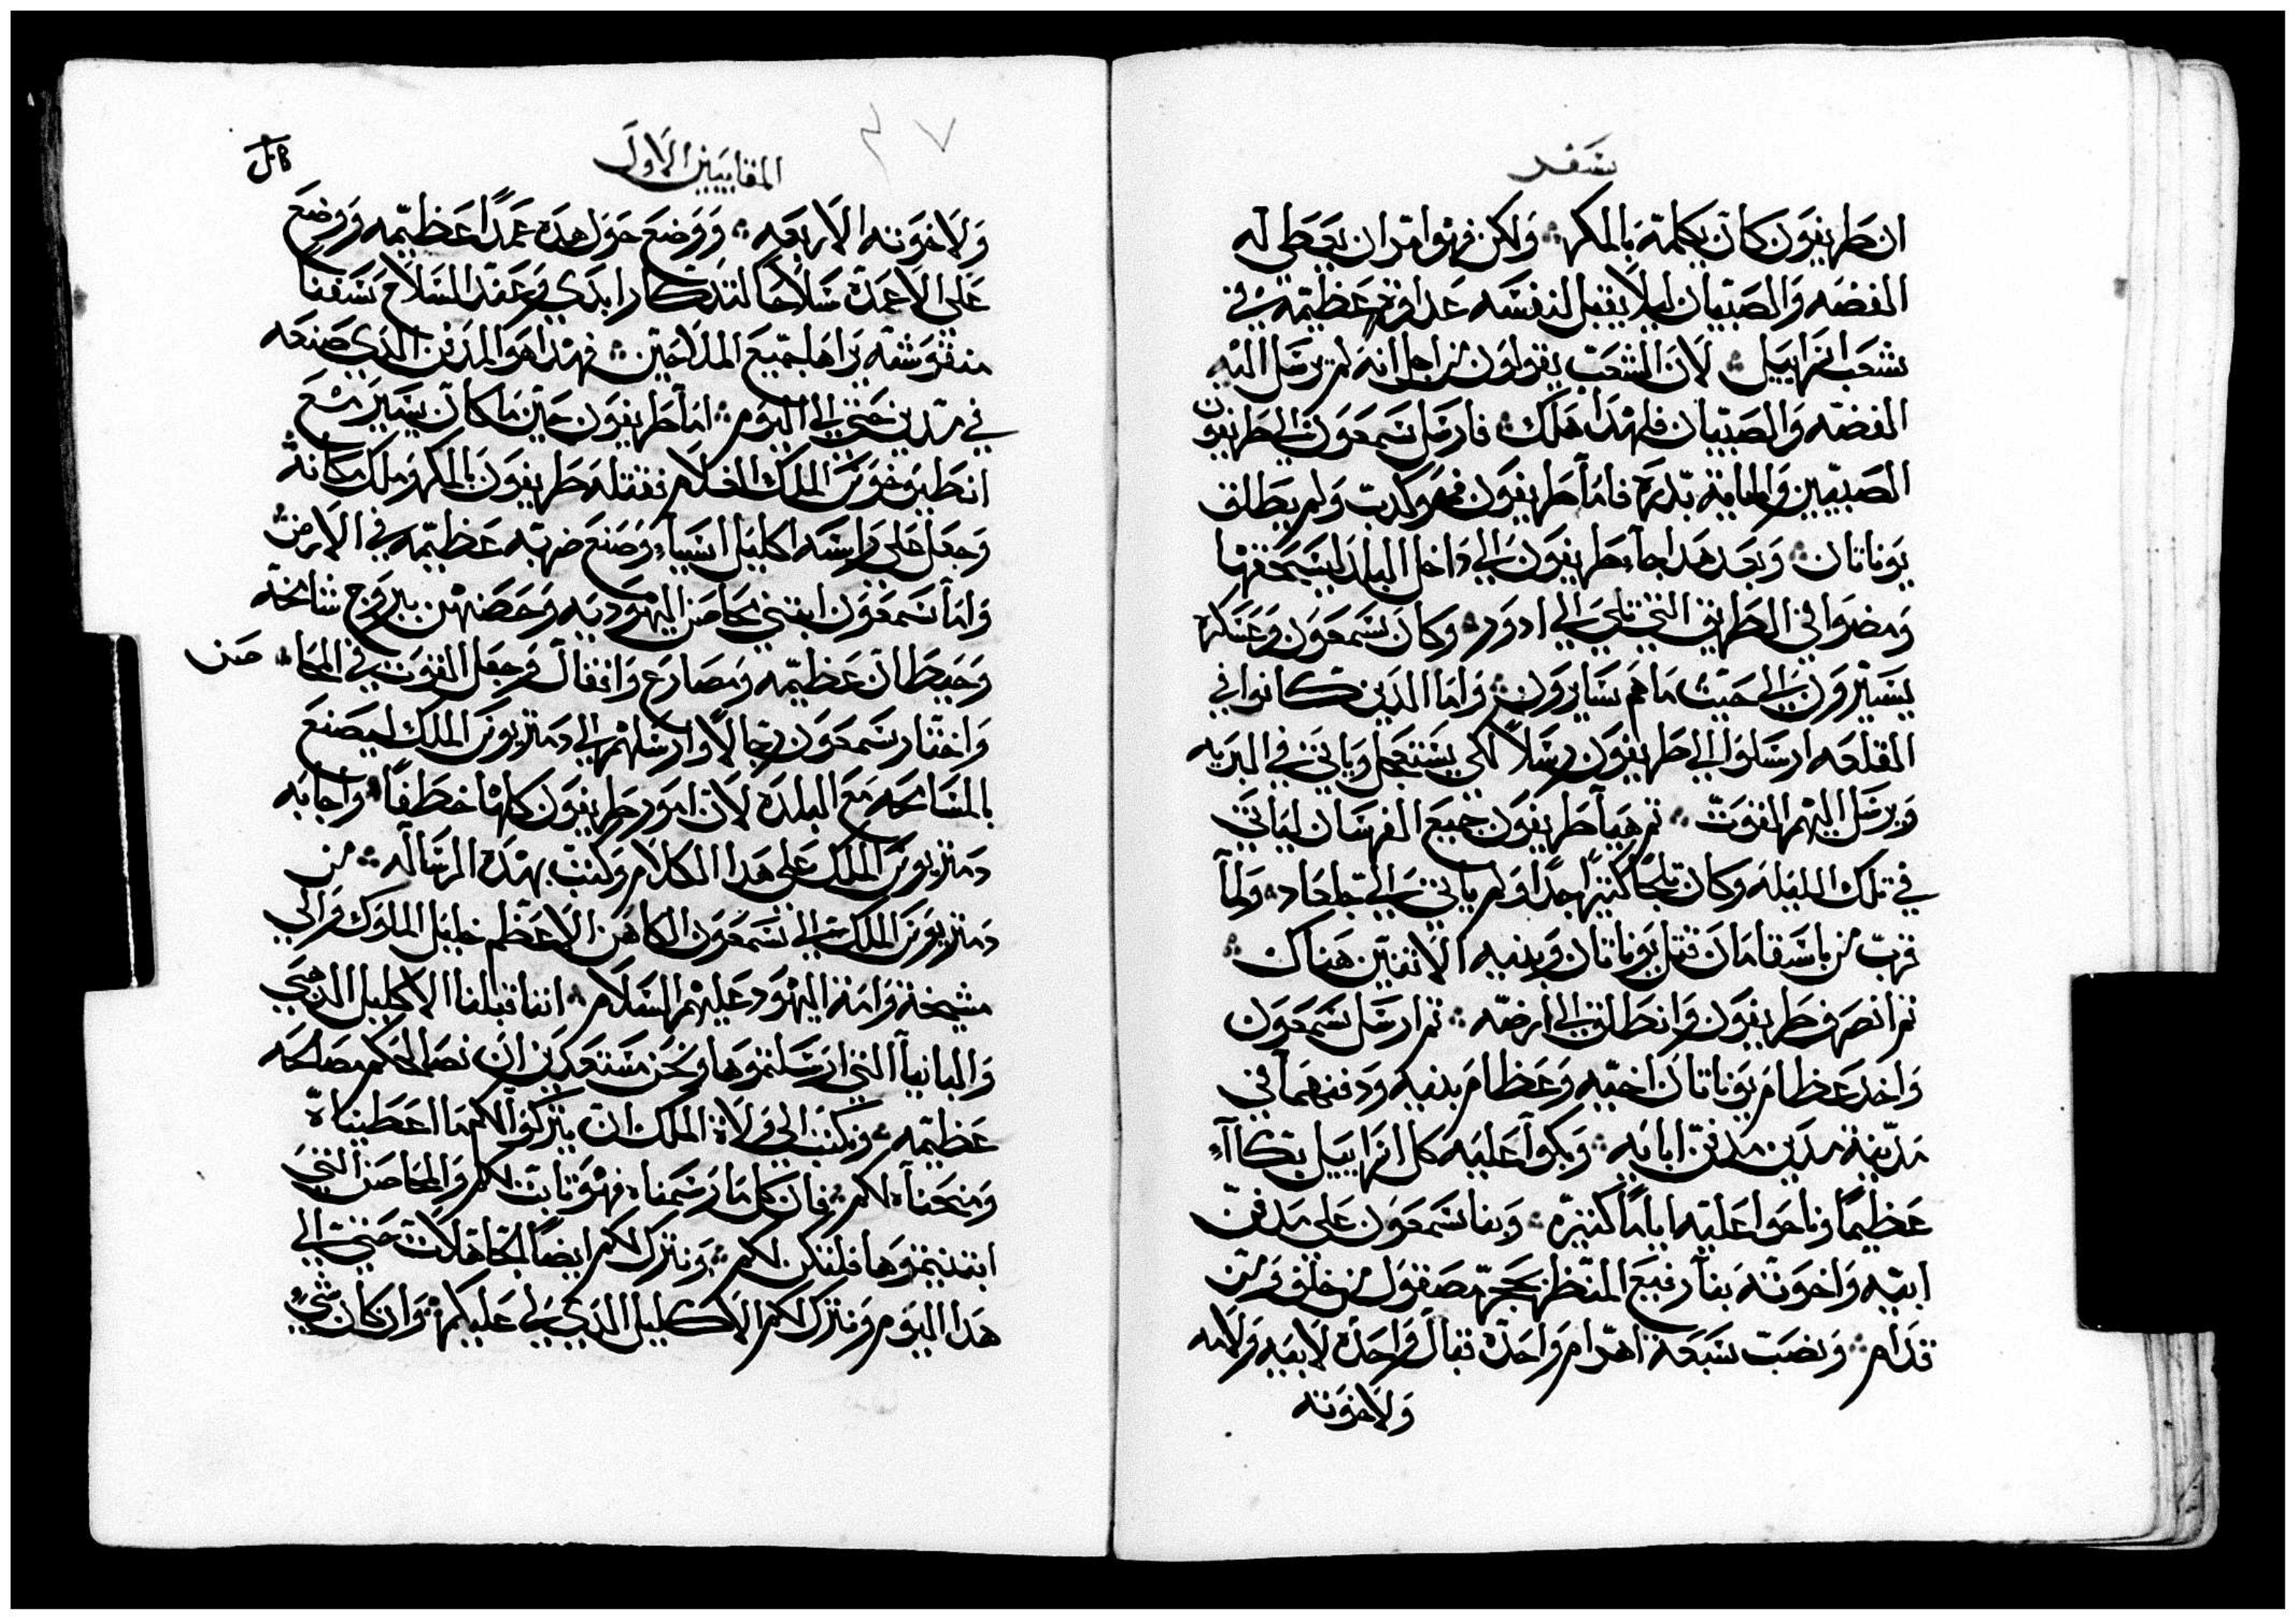 سفر
ان طريفون كان يكلمه بالمكر ولكن فهو امر ان يعطي له
الفضه والصبيان ليلا يقبل لنفسه عداوة عظيمه في
شعب اسراييل لان الشعب يقولون من اجل انه لم يرسل اليه
الفضه والصبيان فلهذا هلك فارسل سمعون الي طريفون
الصبيين والماية بدره فاما طريفون فهو كدب ولم يطلق
يوناتان وبعد هدا جاء طريفون الي داخل البلد ليسحقها
ومضوا في الطريق التي تلي الي ادور وكان سمعون وعسكره
يسيرون الي حيث ما هم سايرون واما الدين كانوا في
القلعه ارسلوا الي طريفون رسلاً لكي يستعجل وياتي في البريه
ويرسل اليهم القوت تم هيا طريفون جميع الفرسان لياتي
في تلك الليله وكان تلجاً كثيراً جداً ولم ياتي الي جلعاد ولما
قرب من باسقامان قتل يوناتان وبنيه الاتنين هناك
تم انصرف طريفون وانطلق الي ارضه تم ارسل سمعون
واخد عظام يوناتان اخيه وعظام بنيه ودفنهما في
مدينة مدين مدفن ابايه وبكوا عليه كل اسراييل بكاآء
عظيماً وناحوا عليه اياماً كثيره وبنا سمعون علي مدفن
ابيه واخوته بنآ رفيع المنظر بحجر مصقول من خلف ومن
قدام ونصب سبعة اهرام واحدة قبال واحدة لابيه ولامه
ولاخوته
المقابيين الاول
٤٧
ولاخوته الاربعه ووضع حول هده عمداً عظيمه ووضع
علي الاعمدة سلاحاً لتدكار ابدي وعند السلاح سفناً
منقوشه يراها جميع الملاحين فهدا هو المدفن الدي صنعه
في مدين حتي الي اليوم اما طريفون حين ما كان يسير مع
انطيوخوس الملك الغلام فقتله طريفون بالمكر وملك مكانه
وجعل علي راسه اكليل اسيا وصنع ضربه عظيمه في الارض
واما سمعون ابتني محاصن اليهوديه وحصنهن ببروج شامخه
وحيطان عظيمه ومصارع واقفال وجعل القوت في المحاصن
واختار سمعون رجالاً وارسلهم الي دمتريوس الملك ليصنع
بالمسامحه مع البلده لان امور طريفون كلها خطفاً واجابه
دمتريوس الملك علي هدا الكلام وكتب بهده الرساله من
دمتريوس الملك الي سمعون الكاهن الاعظم خليل الملوك والي
مشيخة وامة اليهود عليهم السلام اننا قبلنا الاكليل الدهبي
والبانيا التي ارسلتموها ونحن مستعدين ان نصالحكم مصلحه
عظيمه ونكتب الي ولاة الملك ان يتركوا لكم ما اعطيناه
ومنحناه لكم فان كل ما رسمناه فهو تابت لكم والمحاصن التي
ابتنيتموها فلتكن لكم ونترك لكم ايضاً الجاهلات حتي الي
هدا اليوم ونترك لكم الاكليل الدي لي عليكم وان كان شي